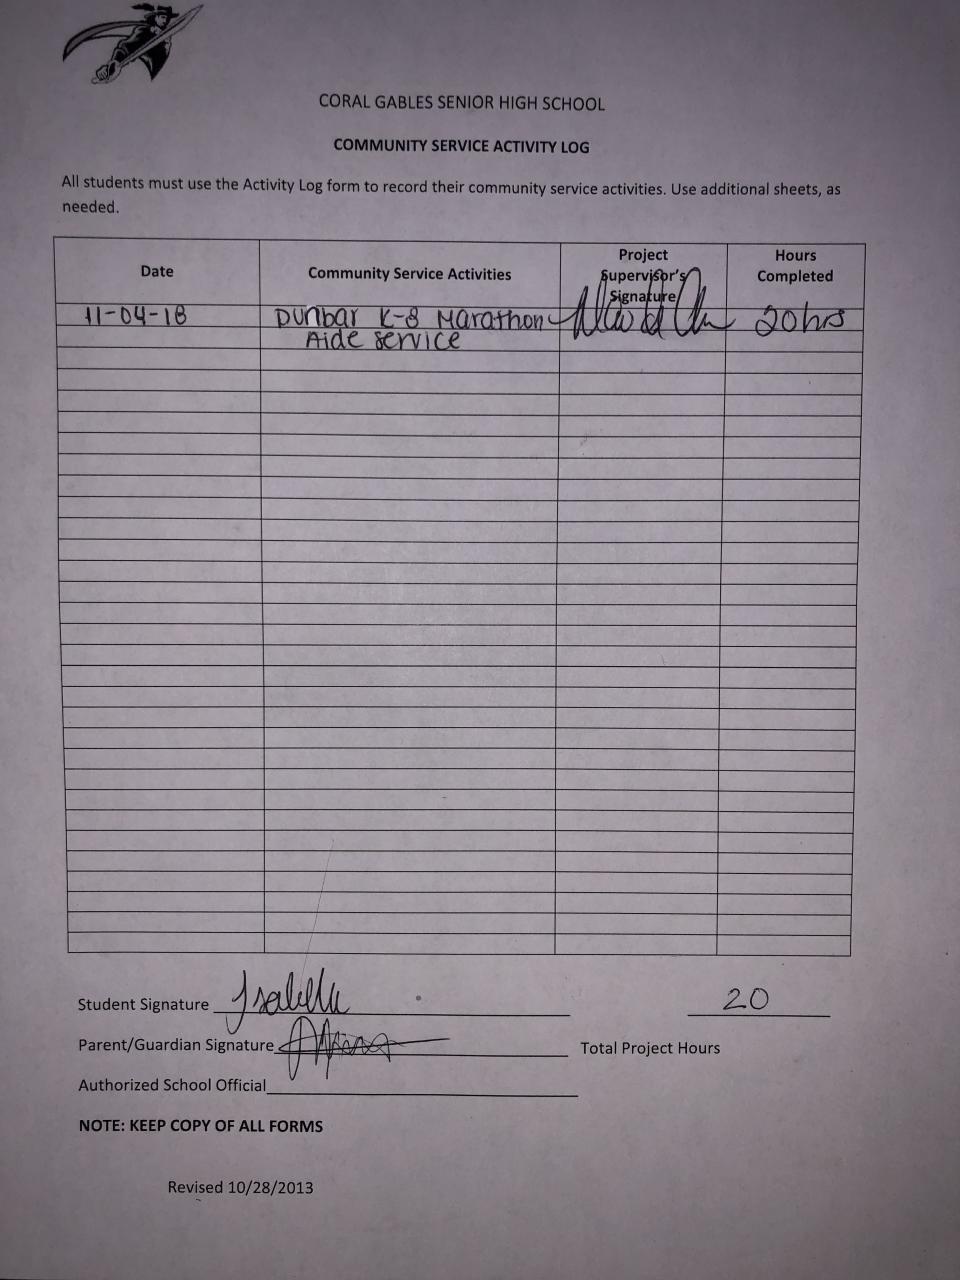 CORAL GABLES SENIOR HIGH SCHOOL
COMMUNITY SERVICE ACTIVITY LOG
All students must use the Activity Log form to record their community service activities. Use additional sheets, as
needed.
Date Community Service Activities Project Supervisor's Signature Hours Completed
11-04-18 Dunbar K-8 Marathon 20hrs
Aide service
Student Signature Isabella 20
Parent/Guardian Signature Total Project Hours
Authorized School Official
NOTE: KEEP COPY OF ALL FORMS
Revised 10/28/2013